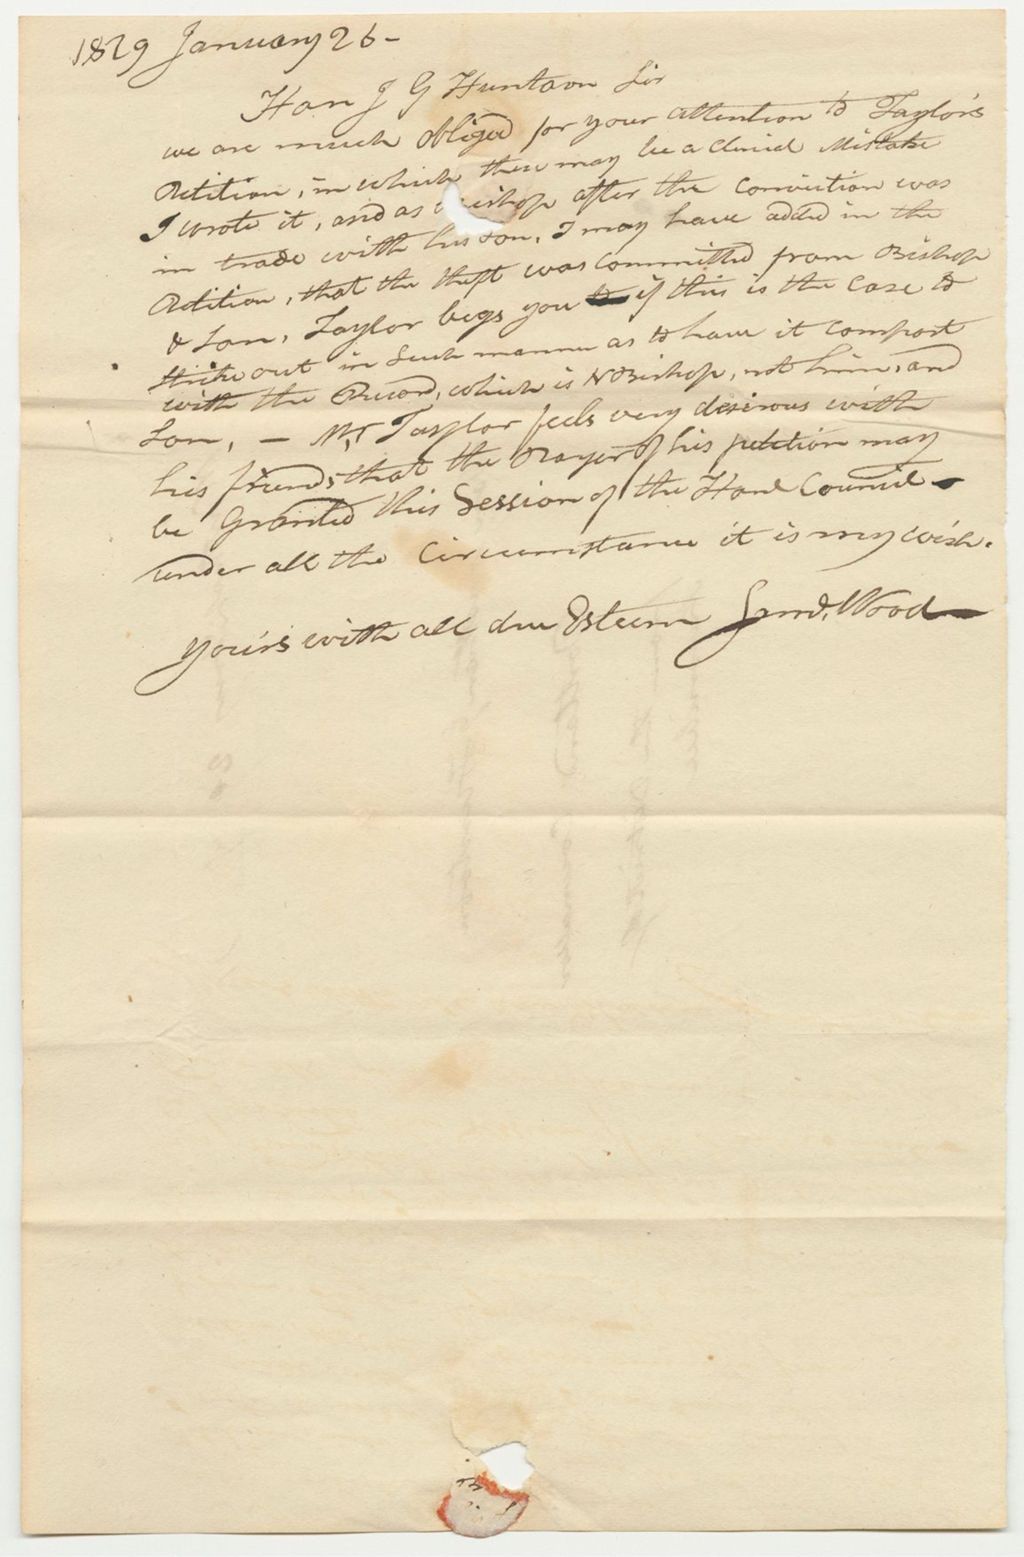 1829 January 26 -
Hon J G Huntoon Sir
we are much obliged for your attention to Taylor's
Petition, in which there may be a clerical Mistake
I wrote it, and as Bishop after the Conviction was
in trade with his son, I may have added in the
Petition, that the theft was Committed from Bishop
& Son, Taylor begs you if this is the Case to
strike out in Such manner as to have it comport
with the Record, which is N Bishop, not him, and
Son, - Mr Taylor feels very desirous with
his friends that the Prayer of his petition may
be Granted this Session of the Honl Council -
under all the Circumstance it is my wish.
Yours with all due Esteem Saml. Wood